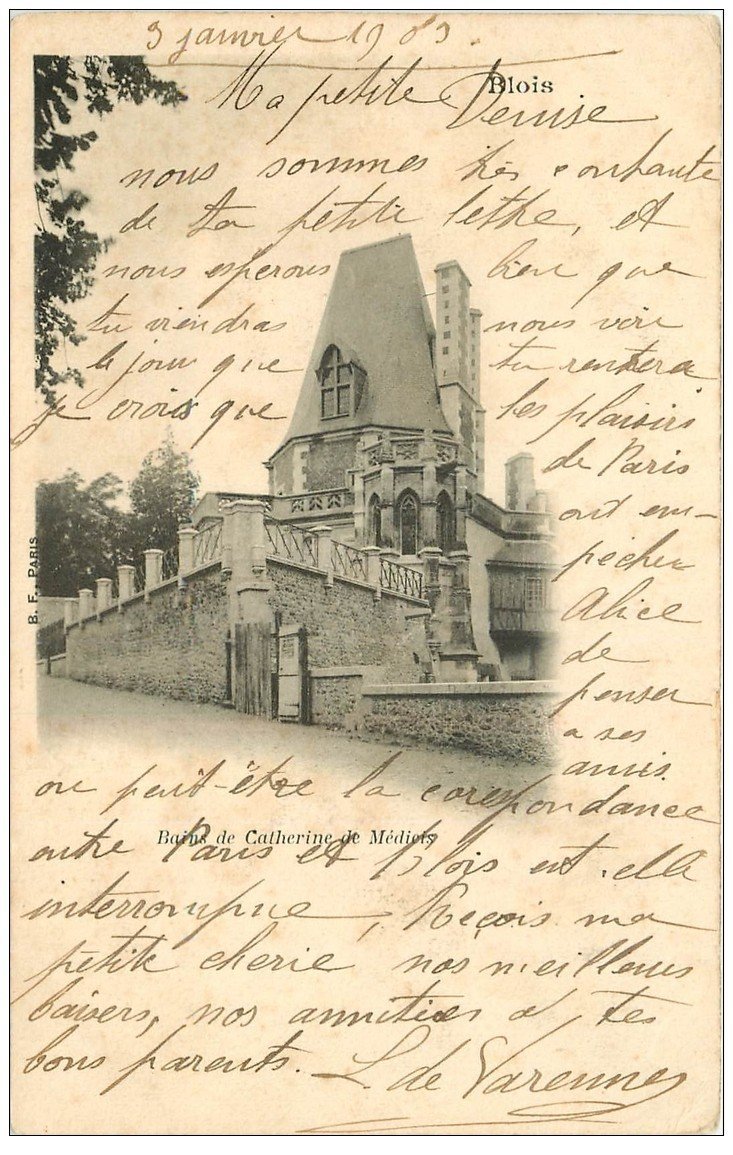 3 janvier 1903.
Blois
Ma petite Denise
nous sommes très contente
de ta petite lettre, et
nous espérons bien que
tu viendras nous voir
le jour que tu rentrera
je crois que les plaisirs
de Paris
ont em-
pêcher
Alice
de
penser
a ses
amis
ou peut-être la corespondance
Bains de Catherine de Médicis
entre Paris et Blois est-elle
interrompue, Reçois ma
petite cherie nos meilleurs
baisers, nos amitiées à tes
bons parents. L. de Varennes
B. F. PARIS